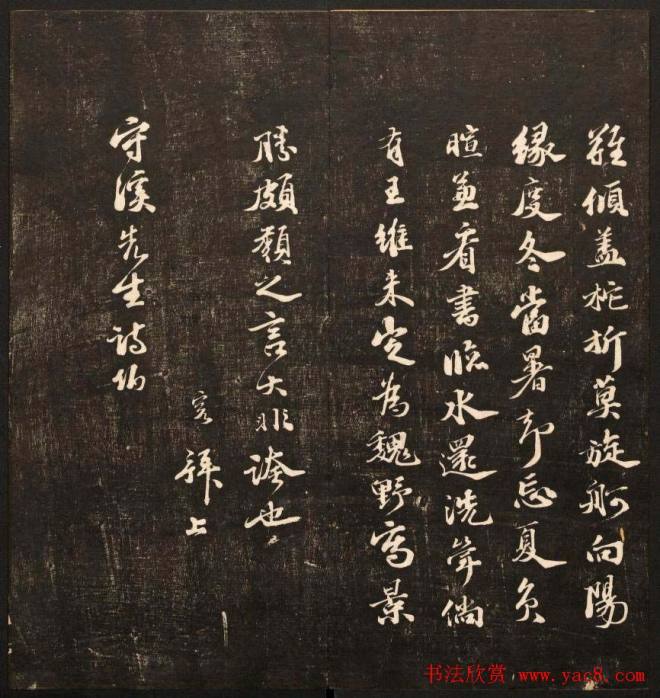 難傾蓋柁折莫旋舸向陽
緣度冬當暑却忘夏負
暄兼看書臨水還洗倘
有王維來定為魏野寫景
勝頗類之言大非誇也
寬拜上
守溪先生詩伯
书法欣赏 www.yac8.com